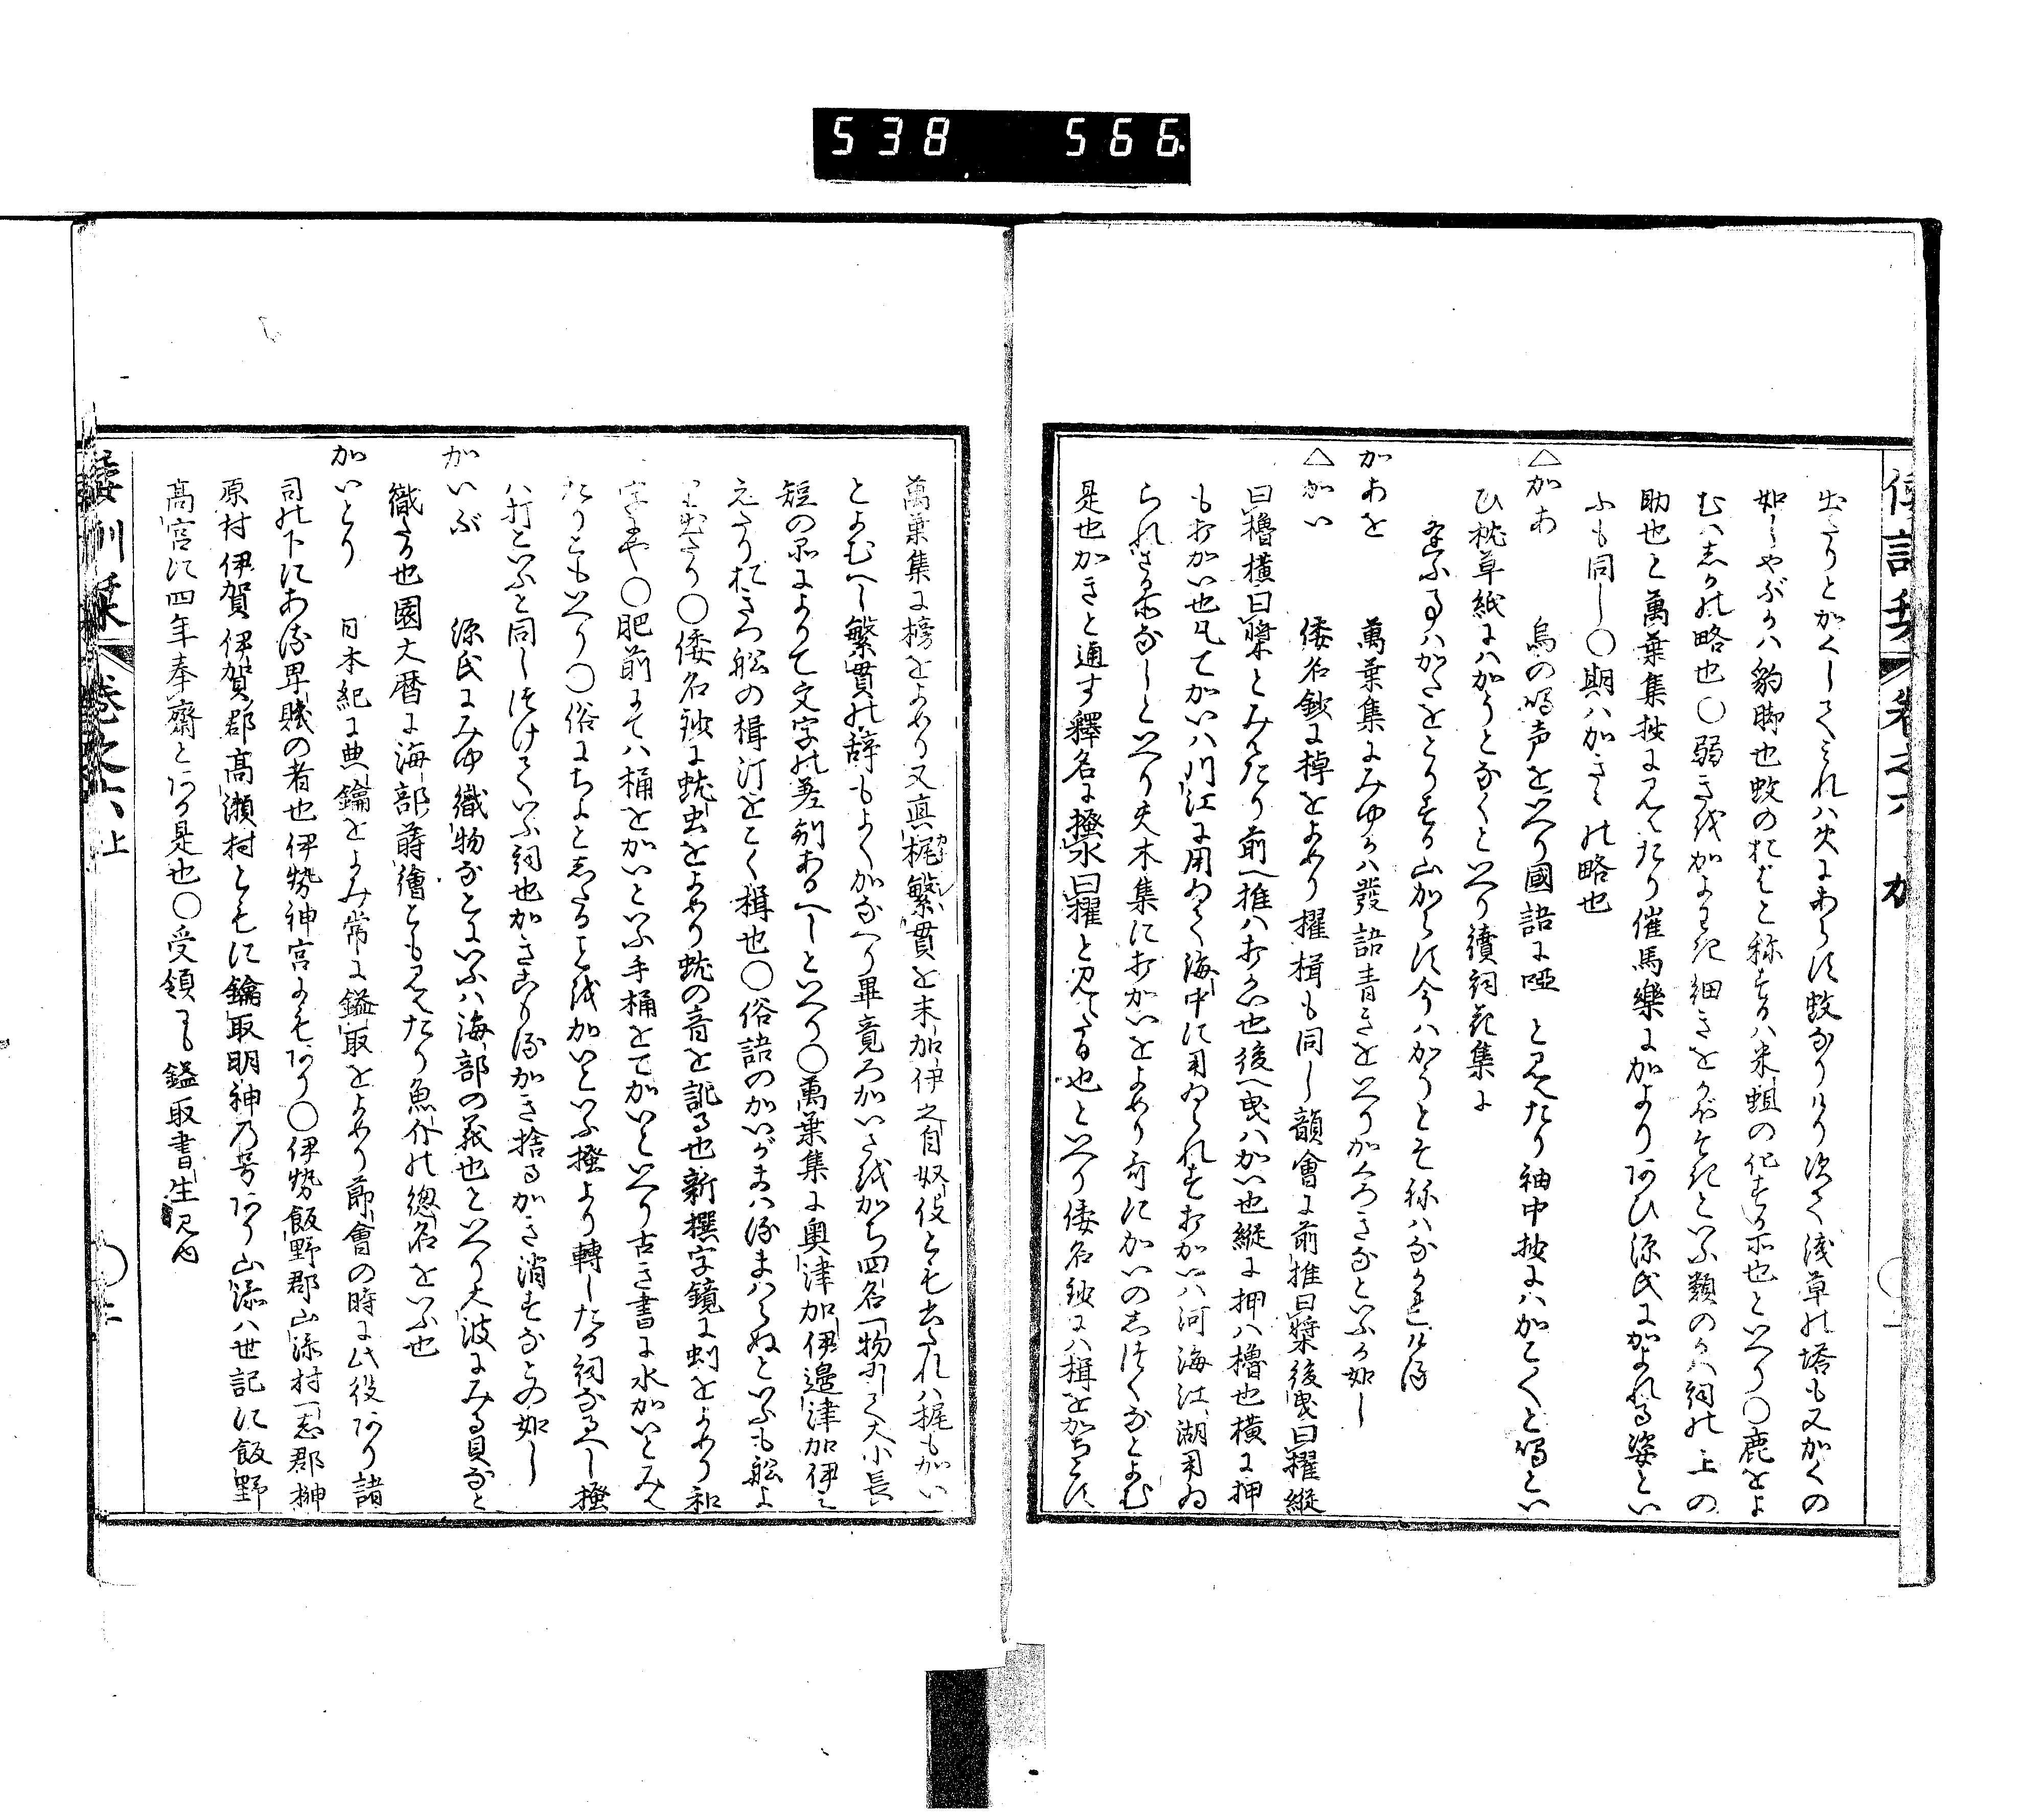 538 566
出たりとかくしてみれハ火にあらす蚊なりけり次て浅草の塔も又かくの
如しやぶかハ豹脚也蚊のおばと称するハ米蛆の化する所也といへり〇鹿をよ
むハしかの略也〇弱き我かよわき細きをかぼそきといふ類のかハ詞の上の
助也と萬葉集抄に見えたり催馬樂にかよりあひ源氏にかよれる姿とい
ふも同し〇期ハかきりの略也
△かあ 烏の鳴声をいへり國語に啞 と見えたり袖中抄にハかこくと鳴とい
ひ枕草紙にハかうとなくといへり續詞花集に
かたをとりする山からす今ハかうとそ
かあを 萬葉集にみゆるハ發語青きをいへりかくろきなといふか如し
△かい 倭名鈔に棹をよめり擢楫も同し韻會に前推曰槳後曳曰擢縦
曰櫓横曰槳とみえたり前へ推ハおかい也後へ曳ハかい也縦に押ハ櫓也横に押
もおかい也凡てかいハ川江に用ゐて海中に用ゐられすおかいハ河海江湖用ゐ
られさる所なしといへり夫木集におかいをよめり哥にかいのしつくなとよむ
是也かきと通す釋名に撥水曰擢と見えたる也といへり倭名鈔にハ楫をかちとす
倭訓栞 卷之六上
萬葉集に榜をよめり又真梶繁貫を末加伊之自奴伎とも書たれハ梶もかい
とよむへし繁貫の辞もよくかなへり畢竟ろかいさをかち四名一物にして大小長
短の品によりて文字の差別あるへしといへり〇萬葉集に奥津加伊邊津加伊と
見えたりおきつ舩の楫汀をこく楫也〇俗語のかいがまハるまハらぬといふも舩よ
り出たり〇倭名鈔に蚘虫をよめり蚘の音を訛る也新撰字鏡に蚓をよめり和
字にや〇肥前にてハ桶をかいといふ手桶をてかいといへり古き書に水かいとみえ
たりともいへり〇俗にちよとしたることをかいといふ撥より轉したる詞なるへし撥
ハ打といふと同しつけていふ詞也かきちらすかき捨るかき消すなとの如し
かいぶ 源氏にみゆ織物なとにいふハ海部の義也といへり大波にみる貝なと
織たる也園大暦に海部蒔繪とも見えたり魚介の總名をいふ也
かいとり 日本紀に典鑰とよみ常に鎰取をよめり節會の時に此役あり諸
司の下にある卑賤の者也伊勢神宮にもあり〇伊勢飯野郡山添村一志郡榊
原村伊賀伊賀郡高瀬村ともに鑰取明神の号あり山添ハ世記に飯野
高宮に四年奉齋とある是也〇受領にも鎰取書生見ゆ
倭訓栞 卷之六上